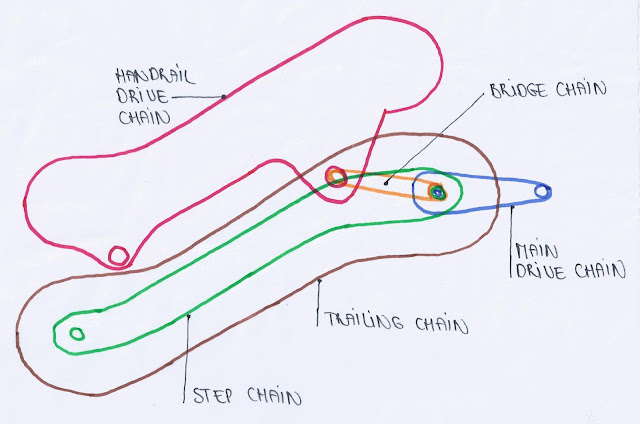 HANDRAIL
DRIVE
CHAIN
BRIDGE CHAIN
MAIN
DRIVE CHAIN
TRAILING CHAIN
STEP CHAIN